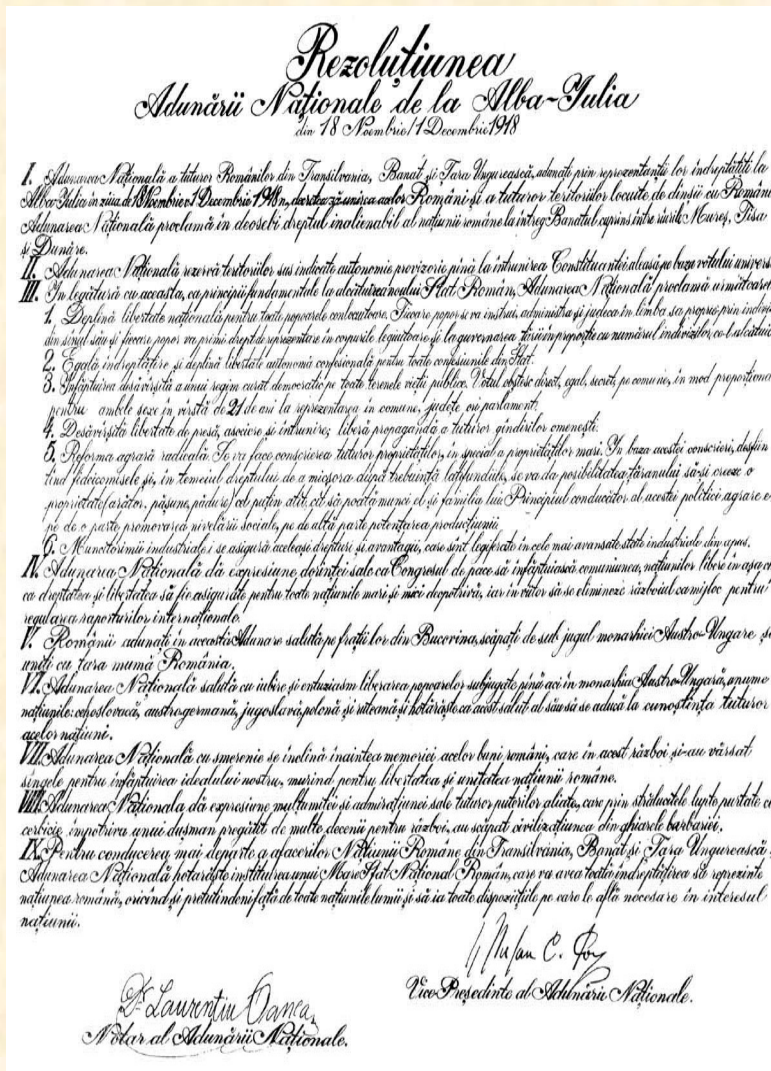 Rezoluțiunea
Adunării Naționale de la Alba-Iulia
din 18 Noembrie/1 Decembrie 1918
I. Adunarea Națională a tuturor Românilor din Transilvania, Banat și Țara Ungurească, adunați prin reprezentanții lor îndreptățiți la
Alba-Iulia în ziua de 18 Noembrie/1 Decembrie 1918, decretează unirea acelor Români și a tuturor teritoriilor locuite de dînșii cu România.
Adunarea Națională proclamă în deosebi dreptul inalienabil al națiunii române la întreg Banatul cuprins între rîurile Mureș, Tisa
și Dunăre.
II. Adunarea Națională rezervă teritoriilor sus indicate autonomie provizorie pînă la întrunirea Constituantei aleasă pe baza votului univers
III. In legătură cu aceasta, ca principii fundamentale la alcătuirea noului Stat Român, Adunarea Națională proclamă următoarel
1. Deplină libertate națională pentru toate popoarele conlocuitoare. Fiecare popor se va instrui, administra și judeca în limba sa proprie prin indivizi
din sînul său și fiecare popor va primi drept de reprezentare în corpurile legiuitoare și la guvernarea țării în proporție cu numărul indivizilor ce-l alcătuies
2. Egală îndreptățire și deplină libertate autonomă confesională pentru toate confesiunile din Stat.
3. Infăptuirea desăvîrșită a unui regim curat democratic pe toate terenele vieții publice. Votul obștesc direct, egal, secret, pe comune, în mod proporționa
pentru ambele sexe în vîrstă de 21 de ani la reprezentarea în comune, județe ori parlament.
4. Desăvîrșită libertate de presă, asociere și întrunire; liberă propagandă a tuturor gîndirilor omenești.
5. Reforma agrară radicală. Se va face conscrierea tuturor proprietăților, în special a proprietăților mari. In baza acestei conscrieri, desfiin
țînd fideicomisele și, în temeiul dreptului de a micșora după trebuință latifundiile, se va da posibilitatea țăranului să-și creeze o
proprietate (arător, pășune, pădure) cel puțin atît, cît să poată munci el și familia lui. Principiul conducător al acestei politici agrare e
pe de o parte promovarea nivelării sociale, pe de altă parte potențarea producțiunii.
6. Muncitorimii industriale i se asigură aceleași drepturi și avantagii, care sînt legiferate în cele mai avansate state industriale din apus.
IV. Adunarea Națională dă expresiune dorinței sale ca Congresul de pace să înfăptuiască comuniunea, națiunilor libere în așa c
ca dreptatea și libertatea să fie asigurate pentru toate națiunile mari și mici deopotrivă, iar în viitor să se elimineze războiul ca mijloc pentru
regularea raporturilor internaționale.
V. Românii adunați în această Adunare salută pe frații lor din Bucovina, scăpați de sub jugul monarhiei Austro-Ungare și
uniți cu țara mumă România.
VI. Adunarea Națională salută cu iubire și entuziasm liberarea popoarelor subjugate pînă aci în monarhia Austro-Ungară, anume
națiunile: cehoslovacă, austrogermană, jugoslavă, polonă și ruteană și hotărăște ca acest salut al său să se aducă la cunoștința tuturor
acelor națiuni.
VII. Adunarea Națională cu smerenie se înclină înaintea memoriei acelor buni români, care în acest război și-au vărsat
sîngele pentru înfăptuirea idealului nostru, murind pentru libertatea și unitatea națiunii române.
VIII. Adunarea Națională dă expresiune mulțumitei și admirațiunei sale tuturor puterilor aliate, care prin strălucitele lupte purtate cu
cerbicie împotriva unui dușman pregătit de multe decenii pentru război, au scăpat civilizațiunea din ghiarele barbariei.
IX. Pentru conducerea mai departe a afacerilor Națiunii Române din Transilvania, Banat și Țara Ungurească,
Adunarea Națională hotărăște instituirea unui Mare Sfat Național Român, care va avea toată îndreptățirea să reprezinte
națiunea română, oricînd și pretutindeni față de toate națiunile lumii și să ia toate dispozițiile pe care le află necesare în interesul
națiunii.
Dr Laurențiu Oanea
Notar al Adunării Naționale.
Ștefan C. Pop
Vice Președinte al Adunării Naționale.